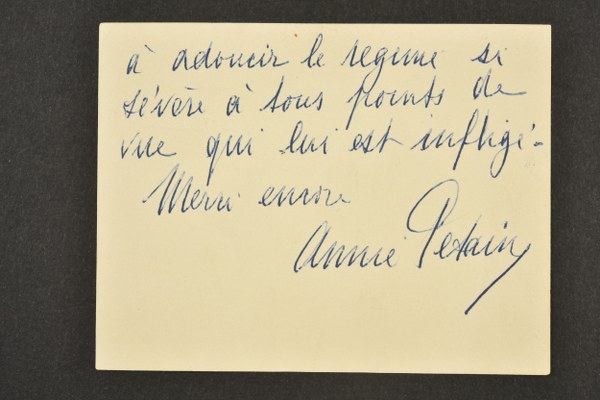 à adoucir le regime si
sévère à tous points de
vue qui lui est infligé-
Merci encore
Annie Petain